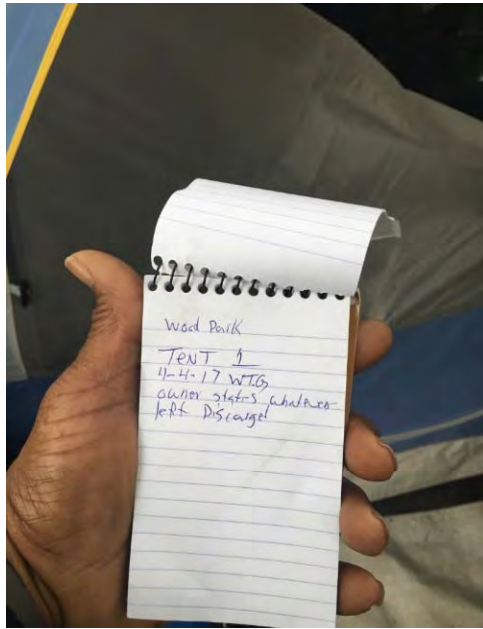 Wood Park
TENT 1
4-4-17 WTG
owner states whatever
left Discarge!